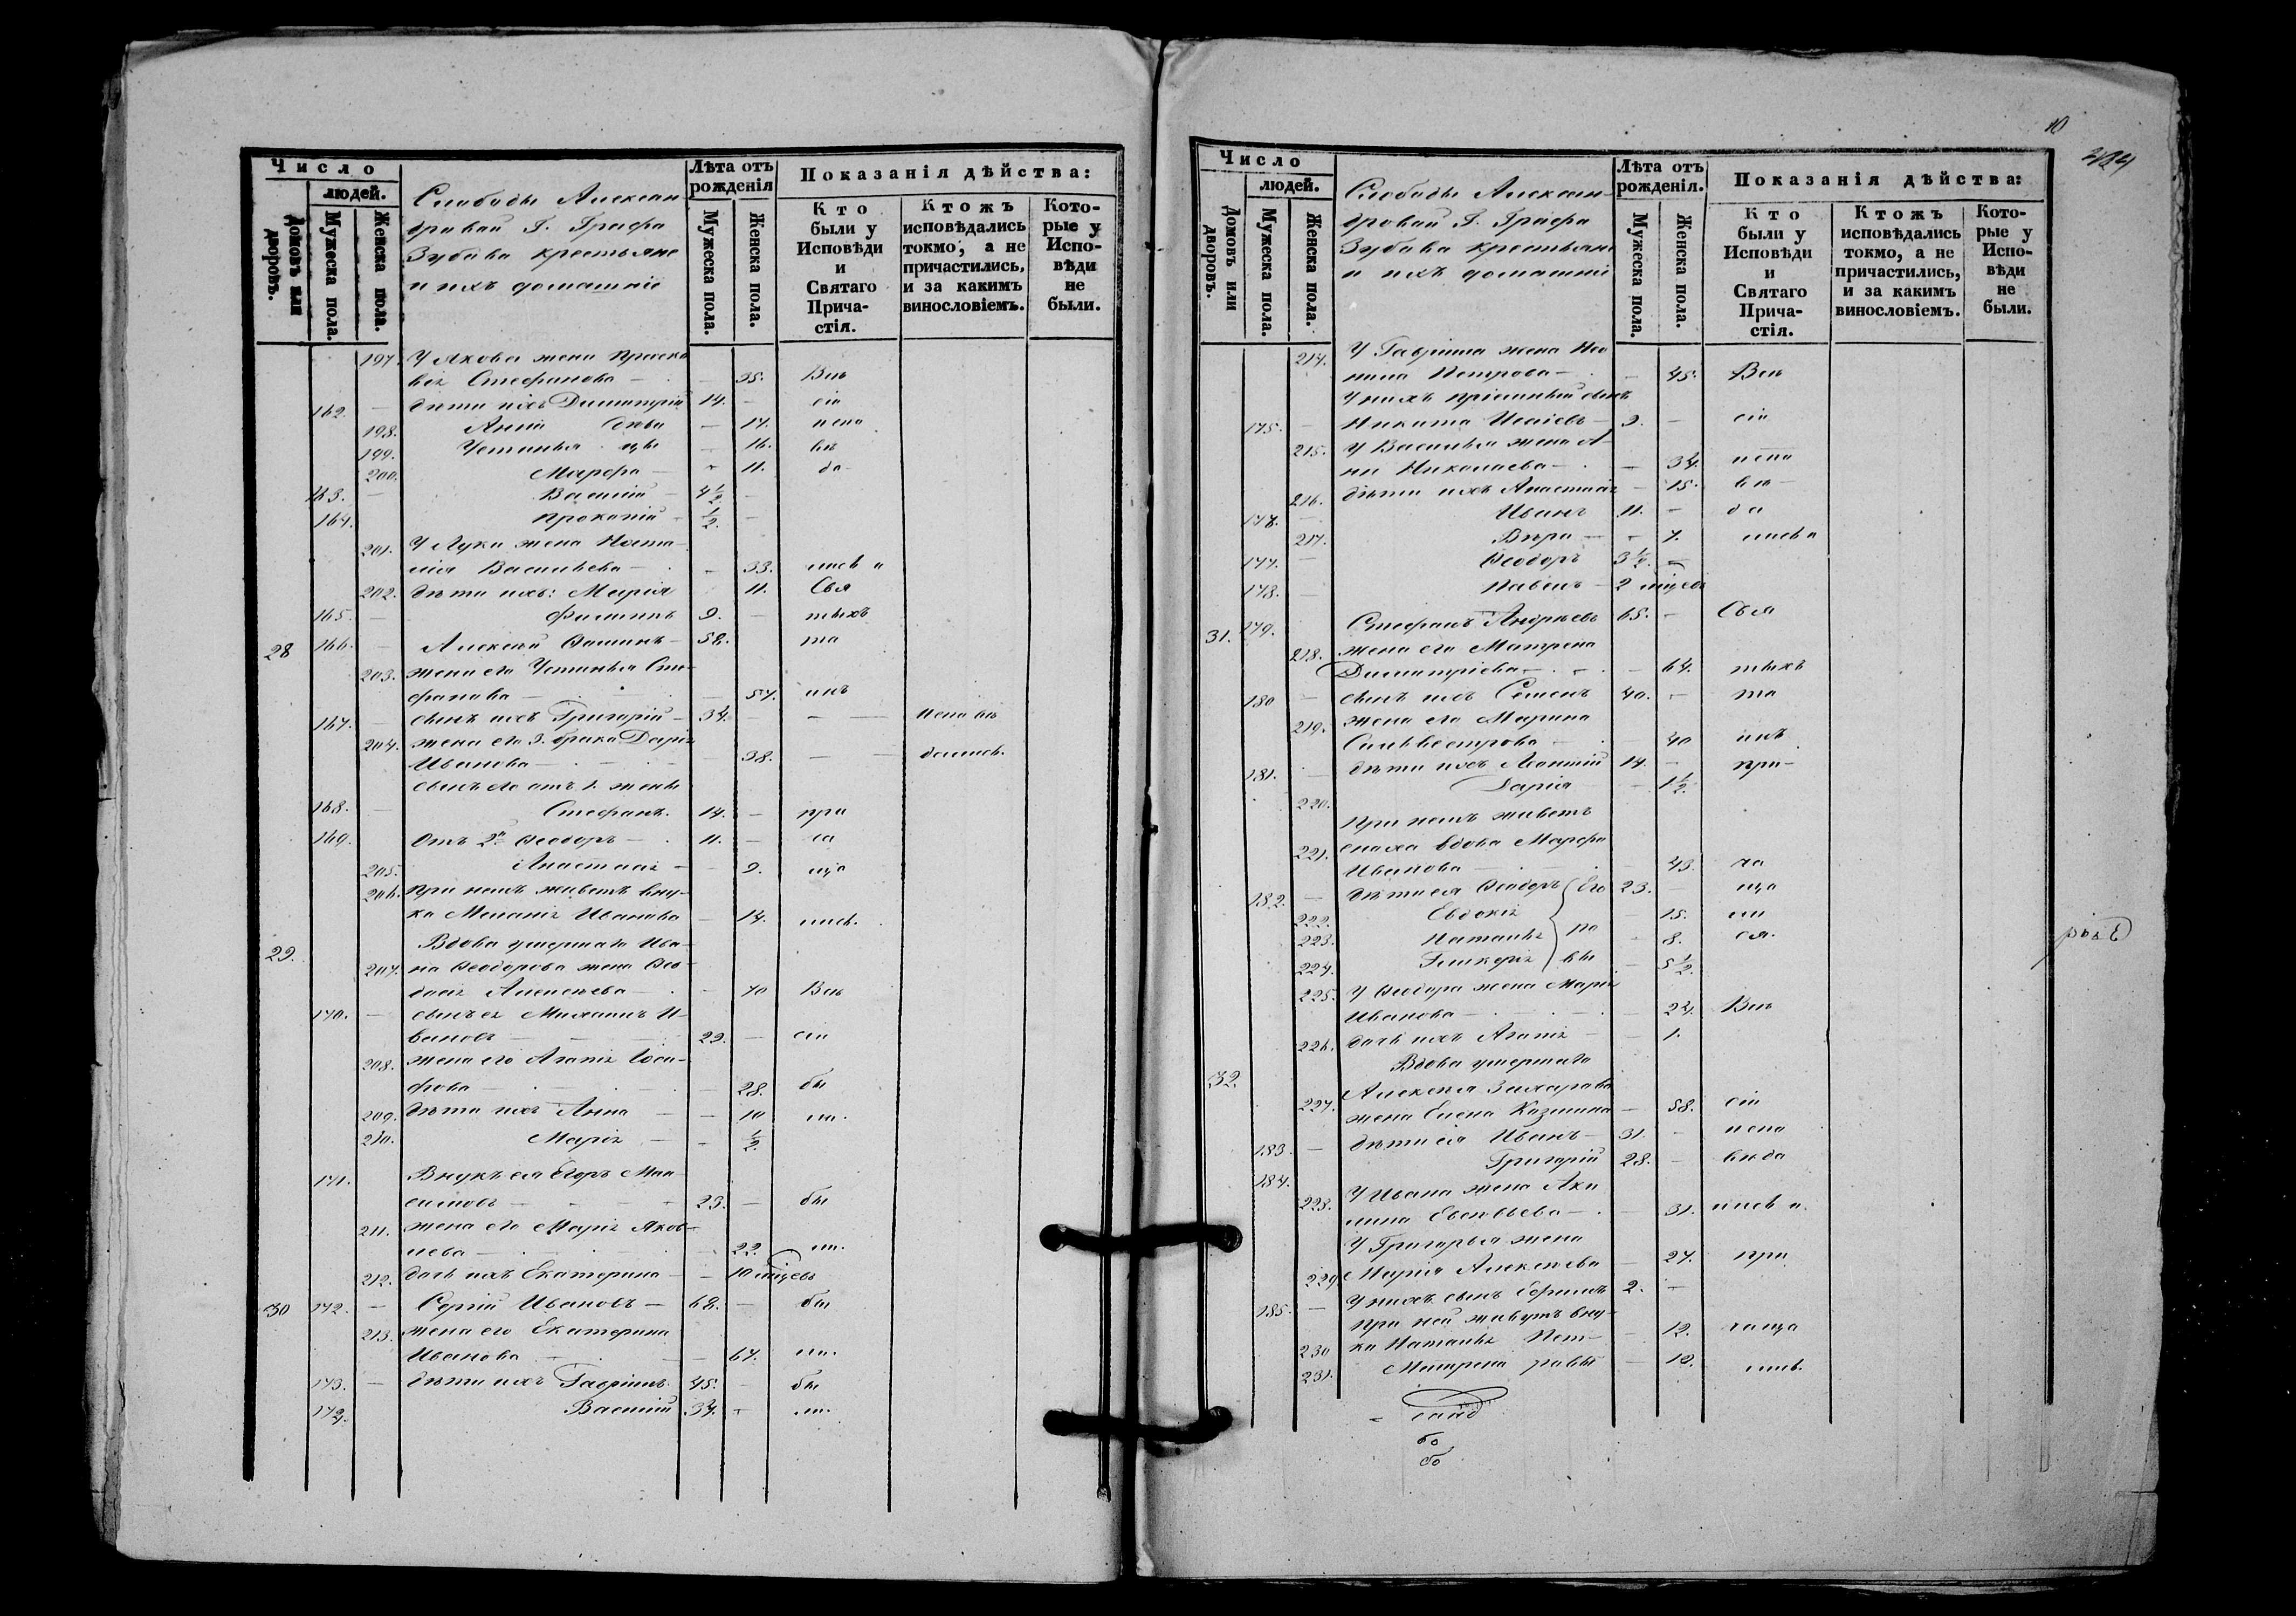 Число
людей.
Домовъ или дворовъ.
Мужеска пола.
Женска пола.
Слободы Алексан
дровай Г. Графа
Зубова крестьяне
и ихъ домашніе
Лѣта отъ рожденія
Мужеска пола.
Женска пола.
Показанія дѣйства:
Кто были у Исповѣди и Святаго Прича-стія.
Ктожъ исповѣдались токмо, а не причастились, и за какимъ винословіемъ.
Кото-рые у Испо-вѣди не были.
197. У Якова жена Праско
віа Стефанова — 35. Въ
162. — дѣти ихъ Димитрій 14. — сіи
198. Анна — 17. испо
199. Устинья — 16. вѣ
200. Марфа — 11. да
163. — Василій 4½ —
164. Прокопій ½ —
201. У Луки жена Ната
лія Васильева — 33. лись и
202. дѣти ихъ: Марія 11. Свя
165. — Филиппъ 9. — тыхъ
28 166. — Алексѣй Фоминъ — 58. та
203. жена его Устинья Сте-
фанова — 57. инъ
167. — сынъ ихъ Григорій — 34. — — Испо вѣ
204. жена его 3. брака Дарія
Иванова — 38. — дались.
сынъ его отъ 1. жены
168. — Стефанъ. 14. — при
169. Отъ 2й Ѳеодоръ — 11. — ча
205. Анастасія — 9. ща
206. При немъ живетъ вну-
ка Меланія Иванова — 14. лись.
29. Вдова умершаго Ива-
207. на Ѳеодорова жена Ѳео-
досія Алексѣева — 70 Въ
170. — сынъ ея Михаилъ И-
вановъ — 29. — сіи
208. жена его Агапія Іоси-
фова — 28. бы
209. дѣти ихъ Анна — — 10 ли.
210. Марія — — ½
171. Внукъ ея Егоръ Мак
симовъ — 23. — бы
211. жена его Марія Яков-
лева — 22. ли.
212. дочь ихъ Екатерина — — 10 мѣсяцевъ
30 172. — Сергій Ивановъ — 68. — бы
213. жена его Екатерина
Иванова — 67. ли.
173. — дѣти ихъ Гавріилъ 45. — бы
174. Василій 34. — ли.
10
484
Число
людей.
Домовъ или дворовъ.
Мужеска пола.
Женска пола.
Слободы Алексан-
дровай Г. Графа
Зубова крестьяне
и ихъ домашніе
Лѣта отъ рожденія.
Мужеска пола.
Женска пола.
Показанія дѣйства:
Кто были у Исповѣди и Святаго Прича-стія.
Ктожъ исповѣдались токмо, а не причастились, и за какимъ винословіемъ.
Кото-рые у Испо-вѣди не были.
214. У Гавріила жена Нео
нила Петрова — 45. Въ
У нихъ пріемный сынъ
175. — Никита Исаіевъ — 9. — сіи
215. У Василья жена А-
на Николаева — 34. испо
216. дѣти ихъ Анастасія — 15. вѣ —
176. — Иванъ 11. — да
217. Вѣра — 7. лись и
177. — Ѳеодоръ 3½. —
178. — Павелъ — 2 мѣсяцевъ
31. 179. Стефанъ Андреевъ 65. — Свя
218. жена его Матрена
Димитріева — 64. тыхъ
180 — сынъ ихъ Семенъ 40. — та
219. жена его Марина
Сильвестрова — 40 инъ
181. — дѣти ихъ Леонтій 14. — при —
220. Дарія — 1½
При немъ живетъ
221. сноха вдова Марфа
Иванова — 43. ча
182. — дѣти ея Ѳеодоръ Его 23. — ща
222. Евдокія ро — 15. ли
223. Наталья вы — 8. ся.
224. Гликерія — 5½.
225. У Ѳеодора жена Марія
Иванова — 24. Въ
226. дочь ихъ Агапія — 1.
32. Вдова умершаго
Алексѣя Захарова
227. жена Елена Козмина — 58. сіи
183. — дѣти ея Иванъ — 31. — испо
184. Григорій 28. — вѣда
228. У Ивана жена Аку
лина Евсевьева — 31. лись и.
У Григорья жена
229 Марія Алексѣева — 27. при
185. — У нихъ сынъ Ефимъ 2. —
При ней живутъ вну-
230 ки Наталья Пет — 12. ча ща
231. Матрена ровы — 10. лись.